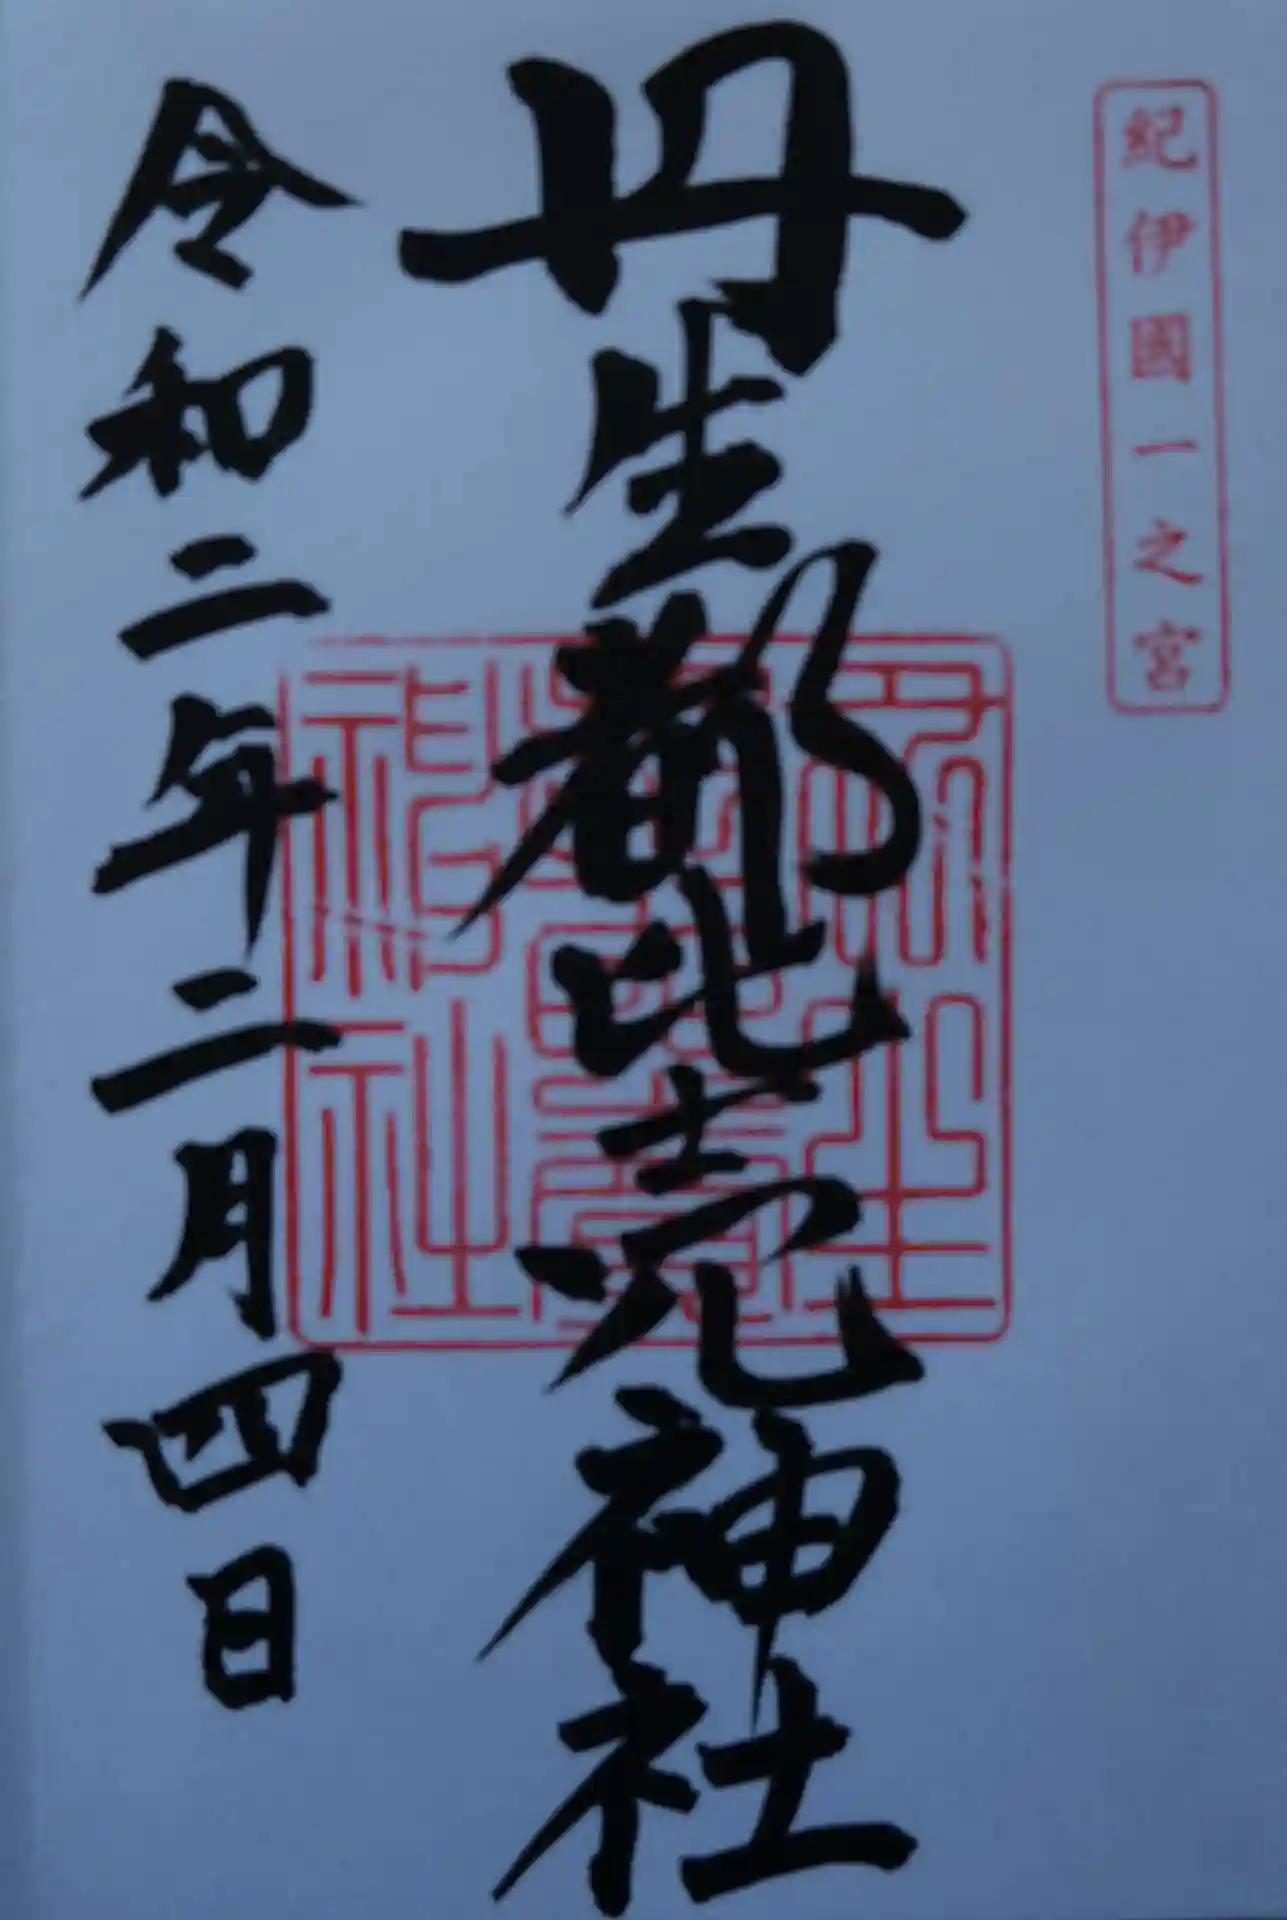 紀伊國一之宮
丹生都比売神社
丹生
神社
令和二年二月四日